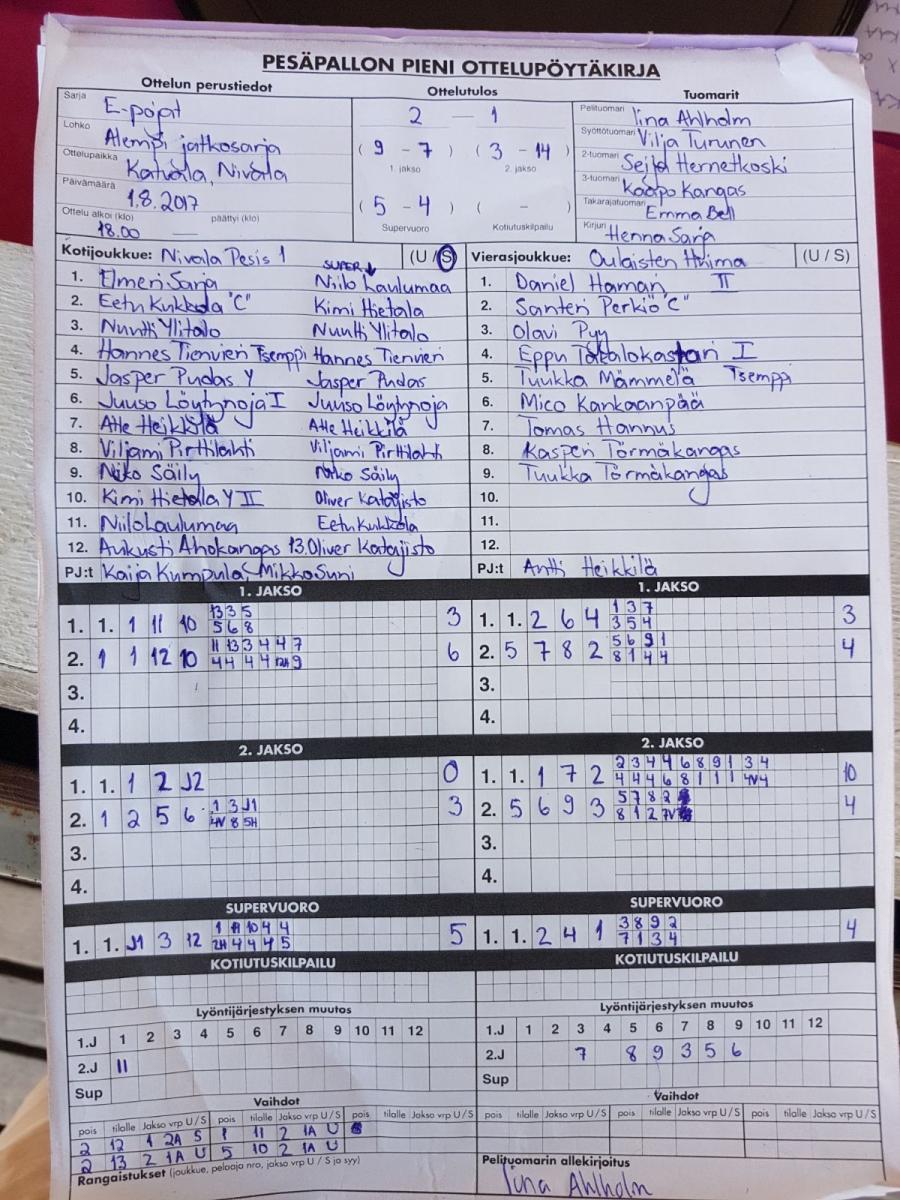 PESÄPALLON PIENI OTTELUPÖYTÄKIRJA
Ottelun perustiedot Ottelutulos Tuomarit
Sarja E-pojat
Lohko Alempi jatkosarja
Ottelupaikka Katvala, Nivala
Päivämäärä 1.8.2017
Ottelu alkoi (klo) 18.00 päättyi (klo) —
2 — 1
( 9 - 7 ) ( 3 - 14 )
1. jakso 2. jakso
( 5 - 4 ) ( - )
Supervuoro Kotiutuskilpailu
Pelituomari Iina Ahlholm
Syöttötuomari Vilja Turunen
2-tuomari Seija Hernetkoski
3-tuomari Kaapo Kangas
Takarajatuomari Emma Bell
Kirjuri Henna Sarja
Kotijoukkue: Nivala Pesis 1 (U / S)
SUPER ↓
1. Elmeri Sarja Niilo Kaulumaa
2. Eetu Kukkola "C" Kimi Hietala
3. Nuutti Ylitalo Nuutti Ylitalo
4. Hannes Tienvieri Tsemppi Hannes Tienvieri
5. Jasper Pudas Y Jasper Pudas
6. Juuso Löytynoja I Juuso Löytynoja
7. Atte Heikkilä Atte Heikkilä
8. Viljami Pirttilahti Viljami Pirttilahti
9. Niko Säily Niko Säily
10. Kimi Hietalla Y II Oliver Katajisto
11. Niilo Kaulumaa Eetu Kukkola
12. Aukusti Ahokangas 13. Oliver Katajisto
PJ:t Kaija Kumpula, Mikko Suni
Vierasjoukkue: Oulaisten Huima (U / S)
1. Daniel Haman II
2. Santeri Perkiö "C"
3. Olavi Pyy
4. Eppu I
5. Tuukka Mämmelä Tsemppi
6. Mico Kankaanpää
7. Tomas Hannus
8. Kasperi Törmäkangas
9. Tuukka Törmäkangas
10.
11.
12.
PJ:t Antti Heikkilä
1. JAKSO 1. JAKSO
13 3 5 1 3 7
1. 1. 1 11 10 5 6 8 3 1. 1. 2 6 4 3 5 4 3
11 13 3 4 4 4 7 5 6 9 1
2. 1 1 12 10 4 4 4 4 12H 9 6 2. 5 7 8 2 8 1 4 4 4
3. 3.
4. 4.
2. JAKSO 2. JAKSO
2 3 4 4 6 8 9 1 3 4
1. 1. 1 2 J2 0 1. 1. 1 7 2 4 4 4 6 8 1 1 1 4V 4 10
1 3 J1 5 7 8 2
2. 1 2 5 6 4V 8 5H 3 2. 5 6 9 3 8 1 2 7V 4
3. 3.
4. 4.
SUPERVUORO SUPERVUORO
1 11 10 4 4 3 8 9 2
1. 1. J1 3 12 2H 4 4 4 5 5 1. 1. 2 4 1 7 1 3 4 4
KOTIUTUSKILPAILU KOTIUTUSKILPAILU
Lyöntijärjestyksen muutos Lyöntijärjestyksen muutos
1.J 1 2 3 4 5 6 7 8 9 10 11 12 1.J 1 2 3 4 5 6 7 8 9 10 11 12
2.J 11 2.J 7 8 9 3 5 6
Sup Sup
Vaihdot Vaihdot
pois tilalle Jakso vrp U / S pois tilalle Jakso vrp U / S pois tilalle Jakso vrp U / S pois tilalle Jakso vrp U / S pois tilalle Jakso vrp U / S pois tilalle Jakso vrp U / S
2 12 1 2A S 1 11 2 1A U
2 13 2 1A U 5 10 2 1A U
Rangaistukset (joukkue, pelaaja nro, jakso vrp U / S ja syy) Pelituomarin allekirjoitus
Iina Ahlholm